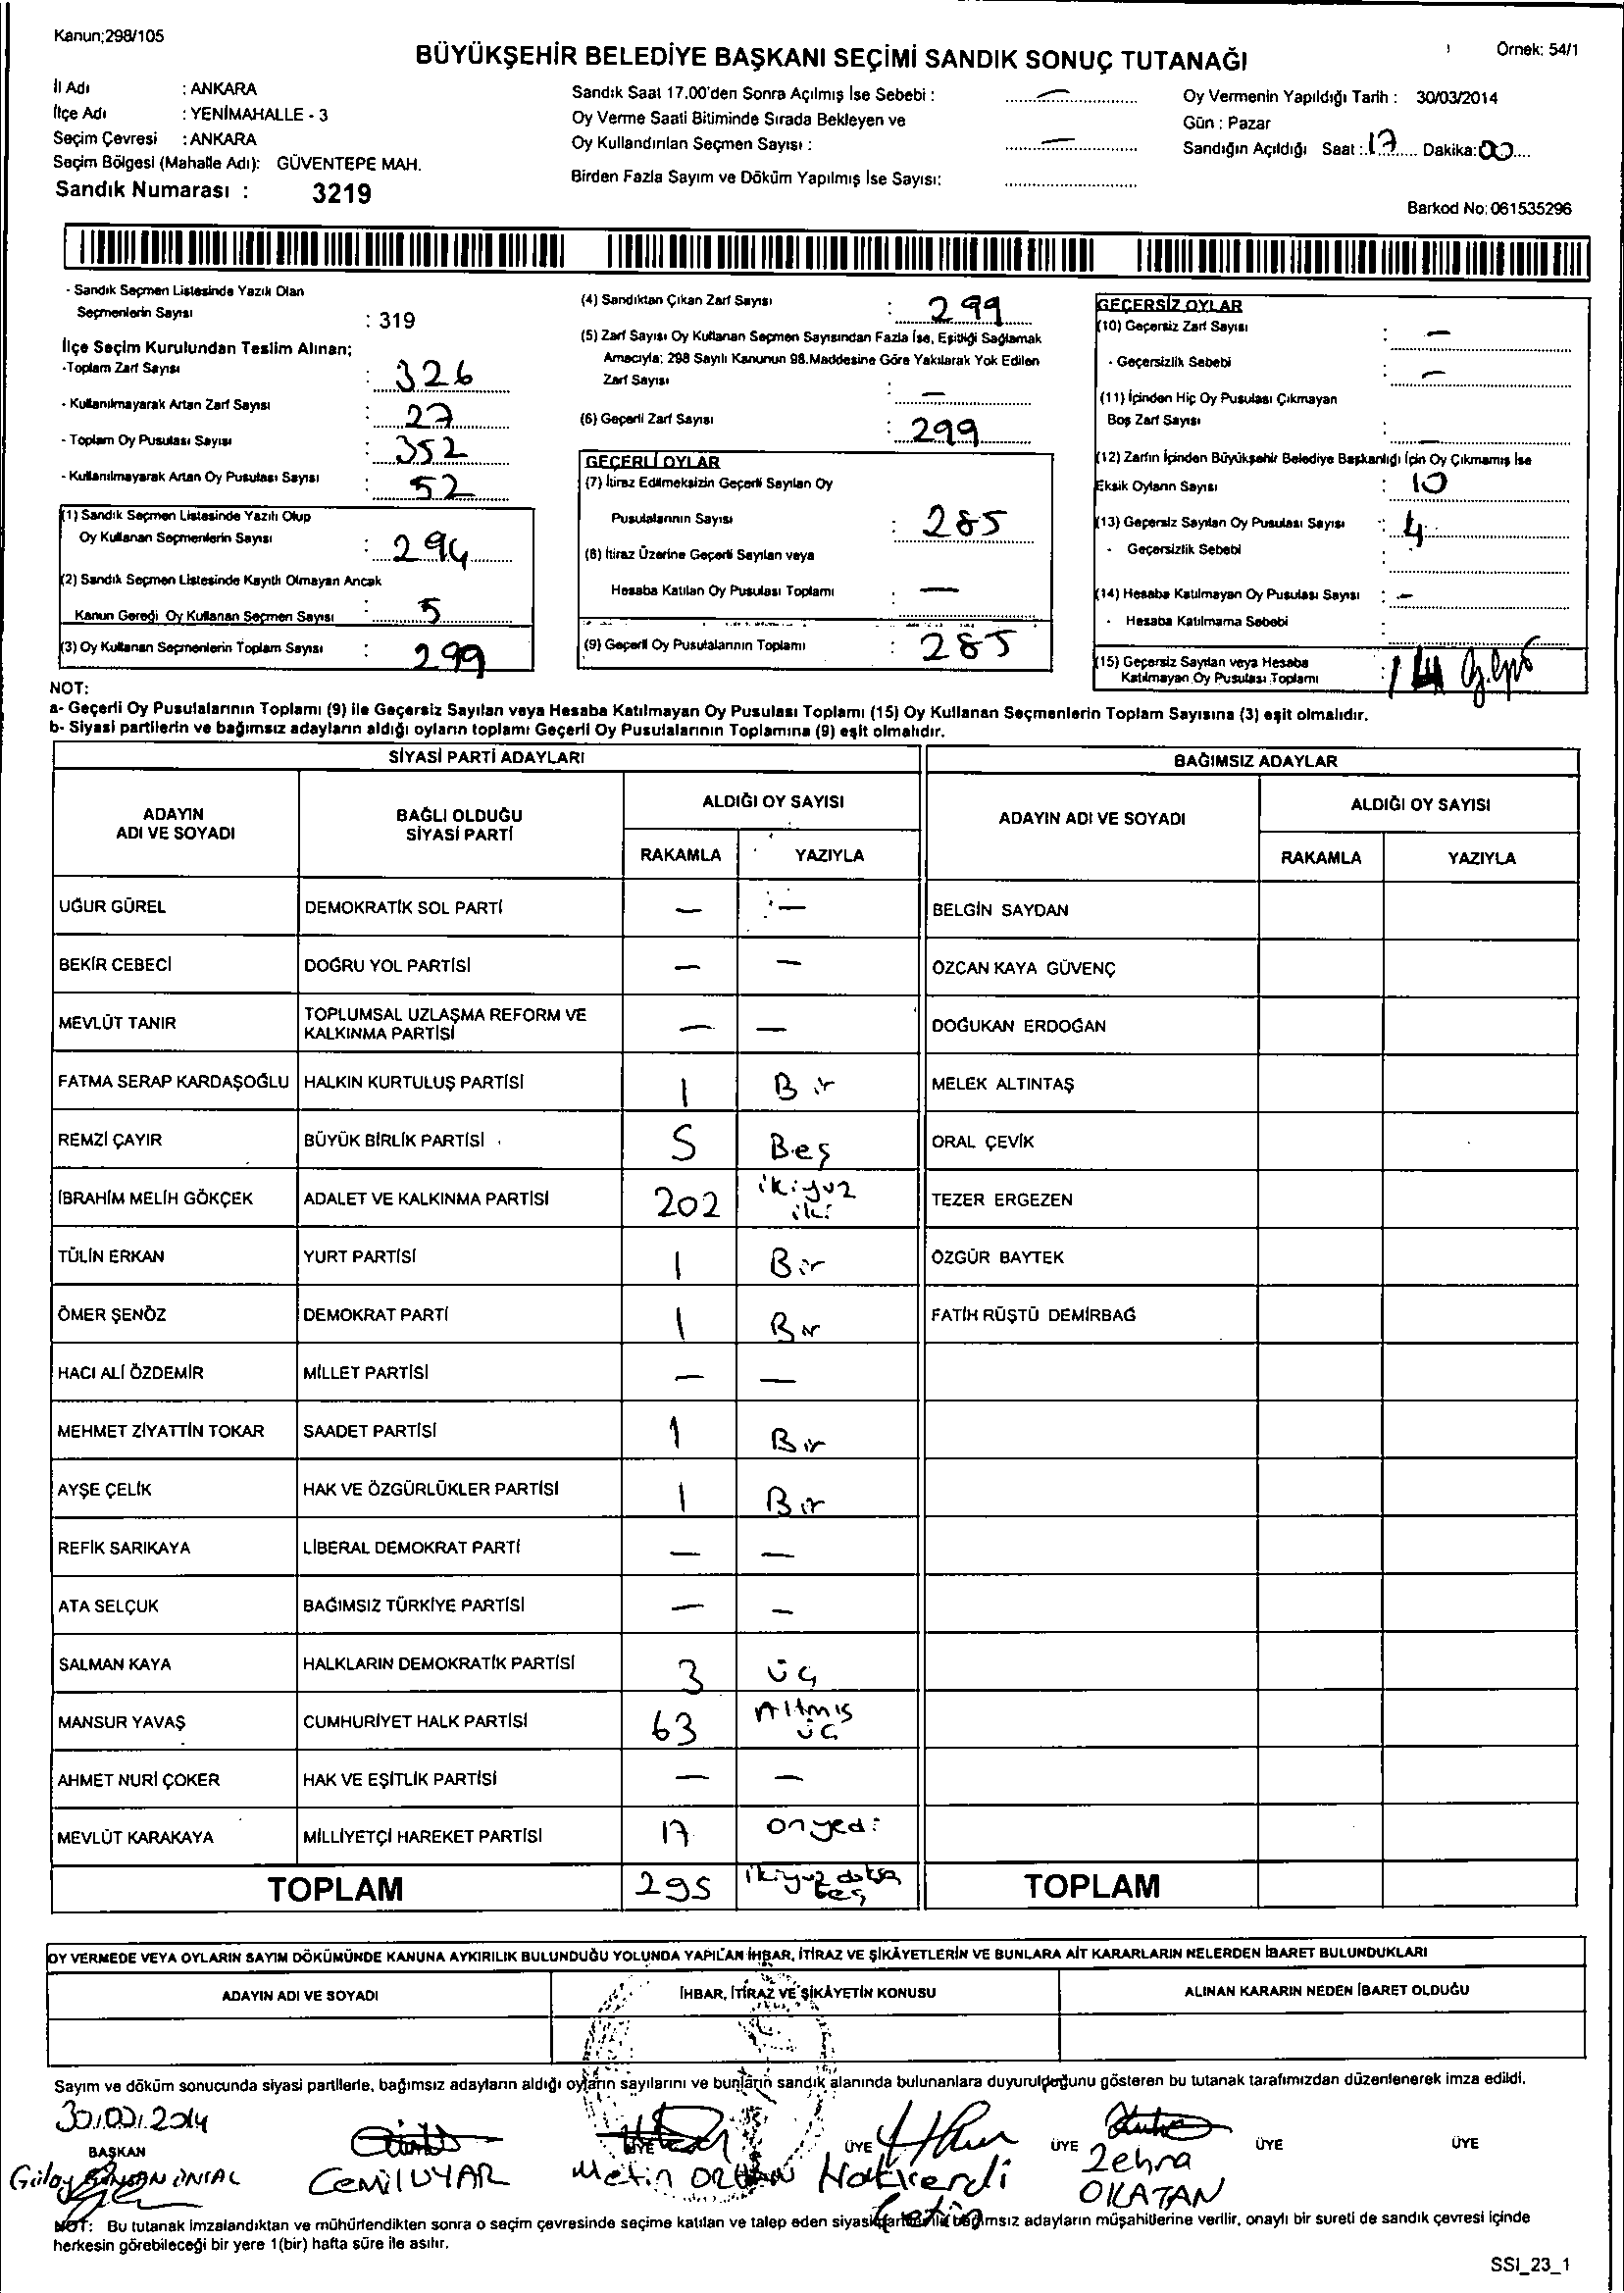 Kanun;298/105
BÜYÜKŞEHİR BELEDİYE BAŞKANI SEÇİMİ SANDIK SONUÇ TUTANAĞI
Örnek: 54/1
İl Adı : ANKARA
İlçe Adı : YENİMAHALLE - 3
Seçim Çevresi : ANKARA
Seçim Bölgesi (Mahalle Adı): GÜVENTEPE MAH.
Sandık Numarası : 3219
Sandık Saat 17.00'den Sonra Açılmış İse Sebebi : —
Oy Verme Saati Bitiminde Sırada Bekleyen ve
Oy Kullandırılan Seçmen Sayısı : —
Birden Fazla Sayım ve Döküm Yapılmış İse Sayısı:
Oy Vermenin Yapıldığı Tarih : 30/03/2014
Gün : Pazar
Sandığın Açıldığı Saat : 17 Dakika: 00
Barkod No: 061535296
- Sandık Seçmen Listesinde Yazılı Olan
Seçmenlerin Sayısı : 319
İlçe Seçim Kurulundan Teslim Alınan;
-Toplam Zarf Sayısı : 326
- Kullanılmayarak Artan Zarf Sayısı : 27
- Toplam Oy Pusulası Sayısı : 352
- Kullanılmayarak Artan Oy Pusulası Sayısı : 52
(1) Sandık Seçmen Listesinde Yazılı Olup
Oy Kullanan Seçmenlerin Sayısı : 294
(2) Sandık Seçmen Listesinde Kayıtlı Olmayan Ancak
Kanun Gereği Oy Kullanan Seçmen Sayısı : 5
(3) Oy Kullanan Seçmenlerin Toplam Sayısı : 299
(4) Sandıktan Çıkan Zarf Sayısı : 299
(5) Zarf Sayısı Oy Kullanan Seçmen Sayısından Fazla İse, Eşitliği Sağlamak
Amacıyla; 298 Sayılı Kanunun 98.Maddesine Göre Yakılarak Yok Edilen
Zarf Sayısı : —
(6) Geçerli Zarf Sayısı : 299
GEÇERLİ OYLAR
(7) İtiraz Edilmeksizin Geçerli Sayılan Oy
Pusulalarının Sayısı : 285
(8) İtiraz Üzerine Geçerli Sayılan veya
Hesaba Katılan Oy Pusulası Toplamı : —
(9) Geçerli Oy Pusulalarının Toplamı : 285
GEÇERSİZ OYLAR
(10) Geçersiz Zarf Sayısı : —
- Geçersizlik Sebebi : —
(11) İçinden Hiç Oy Pusulası Çıkmayan
Boş Zarf Sayısı : —
(12) Zarfın İçinden Büyükşehir Belediye Başkanlığı İçin Oy Çıkmamış İse
Eksik Oyların Sayısı : 10
(13) Geçersiz Sayılan Oy Pusulası Sayısı : 4
- Geçersizlik Sebebi :
(14) Hesaba Katılmayan Oy Pusulası Sayısı : —
- Hesaba Katılmama Sebebi :
(15) Geçersiz Sayılan veya Hesaba
Katılmayan Oy Pusulası Toplamı : 14
NOT:
a- Geçerli Oy Pusulalarının Toplamı (9) ile Geçersiz Sayılan veya Hesaba Katılmayan Oy Pusulası Toplamı (15) Oy Kullanan Seçmenlerin Toplam Sayısına (3) eşit olmalıdır.
b- Siyasi partilerin ve bağımsız adayların aldığı oyların toplamı Geçerli Oy Pusulalarının Toplamına (9) eşit olmalıdır.
SİYASİ PARTİ ADAYLARI
BAĞIMSIZ ADAYLAR
ADAYIN ADI VE SOYADI
BAĞLI OLDUĞU SİYASİ PARTİ
ALDIĞI OY SAYISI
RAKAMLA YAZIYLA
ADAYIN ADI VE SOYADI
ALDIĞI OY SAYISI
RAKAMLA YAZIYLA
UĞUR GÜREL DEMOKRATİK SOL PARTİ — — BELGİN SAYDAN
BEKİR CEBECİ DOĞRU YOL PARTİSİ — — ÖZCAN KAYA GÜVENÇ
MEVLÜT TANIR TOPLUMSAL UZLAŞMA REFORM VE KALKINMA PARTİSİ — — DOĞUKAN ERDOĞAN
FATMA SERAP KARDAŞOĞLU HALKIN KURTULUŞ PARTİSİ 1 Bir MELEK ALTINTAŞ
REMZİ ÇAYIR BÜYÜK BİRLİK PARTİSİ 5 Beş ORAL ÇEVİK
İBRAHİM MELİH GÖKÇEK ADALET VE KALKINMA PARTİSİ 202 ikiyüz iki TEZER ERGEZEN
TÜLİN ERKAN YURT PARTİSİ 1 Bir ÖZGÜR BAYTEK
ÖMER ŞENÖZ DEMOKRAT PARTİ 1 Bir FATİH RÜŞTÜ DEMİRBAĞ
HACI ALİ ÖZDEMİR MİLLET PARTİSİ — —
MEHMET ZİYATTİN TOKAR SAADET PARTİSİ 1 Bir
AYŞE ÇELİK HAK VE ÖZGÜRLÜKLER PARTİSİ 1 Bir
REFİK SARIKAYA LİBERAL DEMOKRAT PARTİ — —
ATA SELÇUK BAĞIMSIZ TÜRKİYE PARTİSİ — —
SALMAN KAYA HALKLARIN DEMOKRATİK PARTİSİ 3 üç
MANSUR YAVAŞ CUMHURİYET HALK PARTİSİ 63 Altmış üç
AHMET NURİ ÇOKER HAK VE EŞİTLİK PARTİSİ — —
MEVLÜT KARAKAYA MİLLİYETÇİ HAREKET PARTİSİ 17 onyedi
TOPLAM 295 ikiyüz doksa beş TOPLAM
OY VERMEDE VEYA OYLARIN SAYIM DÖKÜMÜNDE KANUNA AYKIRILIK BULUNDUĞU YOLUNDA YAPILAN İHBAR, İTİRAZ VE ŞİKÂYETLERİN VE BUNLARA AİT KARARLARIN NELERDEN İBARET BULUNDUKLARI
ADAYIN ADI VE SOYADI İHBAR, İTİRAZ VE ŞİKÂYETİN KONUSU ALINAN KARARIN NEDEN İBARET OLDUĞU
Sayım ve döküm sonucunda siyasi partilerle, bağımsız adayların aldığı oyların sayılarını ve bunların sandık alanında bulunanlara duyurulduğunu gösteren bu tutanak tarafımızdan düzenlenerek imza edildi.
30/03/2014
BAŞKAN ÜYE ÜYE ÜYE ÜYE ÜYE
CEMİL UYAR Metin Hakverdi Çetin Zehra OKATAN
NOT: Bu tutanak imzalandıktan ve mühürlendikten sonra o seçim çevresinde seçime katılan ve talep eden siyasi partilerle bağımsız adayların müşahitlerine verilir, onaylı bir sureti de sandık çevresi içinde
herkesin görebileceği bir yere 1(bir) hafta süre ile asılır.
SSI_23_1